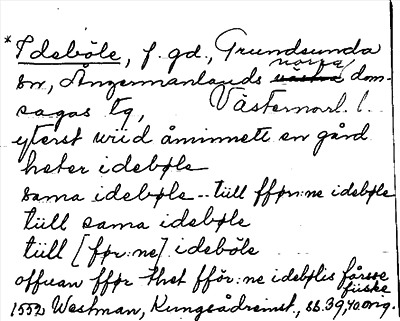 * Idebøle, f. gd., Grundsunda
sn, Ångermanlands norra dom-
sagas tg, Västernorrl. l.
yterst wiid åminnett en gård
heter idebøle
sama idebøle -- tiill fför:ne idebøle
tiill sama idebøle
tiill [för:ne] idebøle
offuan fför thet fför:ne idebølis fårsse fiiske
1552 Westman, Kungsådreinst., ss. 39, 40. orig.